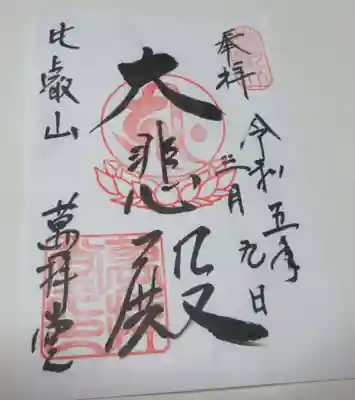 奉拝
令和五年三月九日
大悲殿
比叡山
萬拝堂